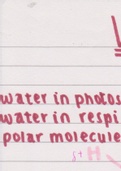 water in photos
water in respi
polar molecule
δ+ H